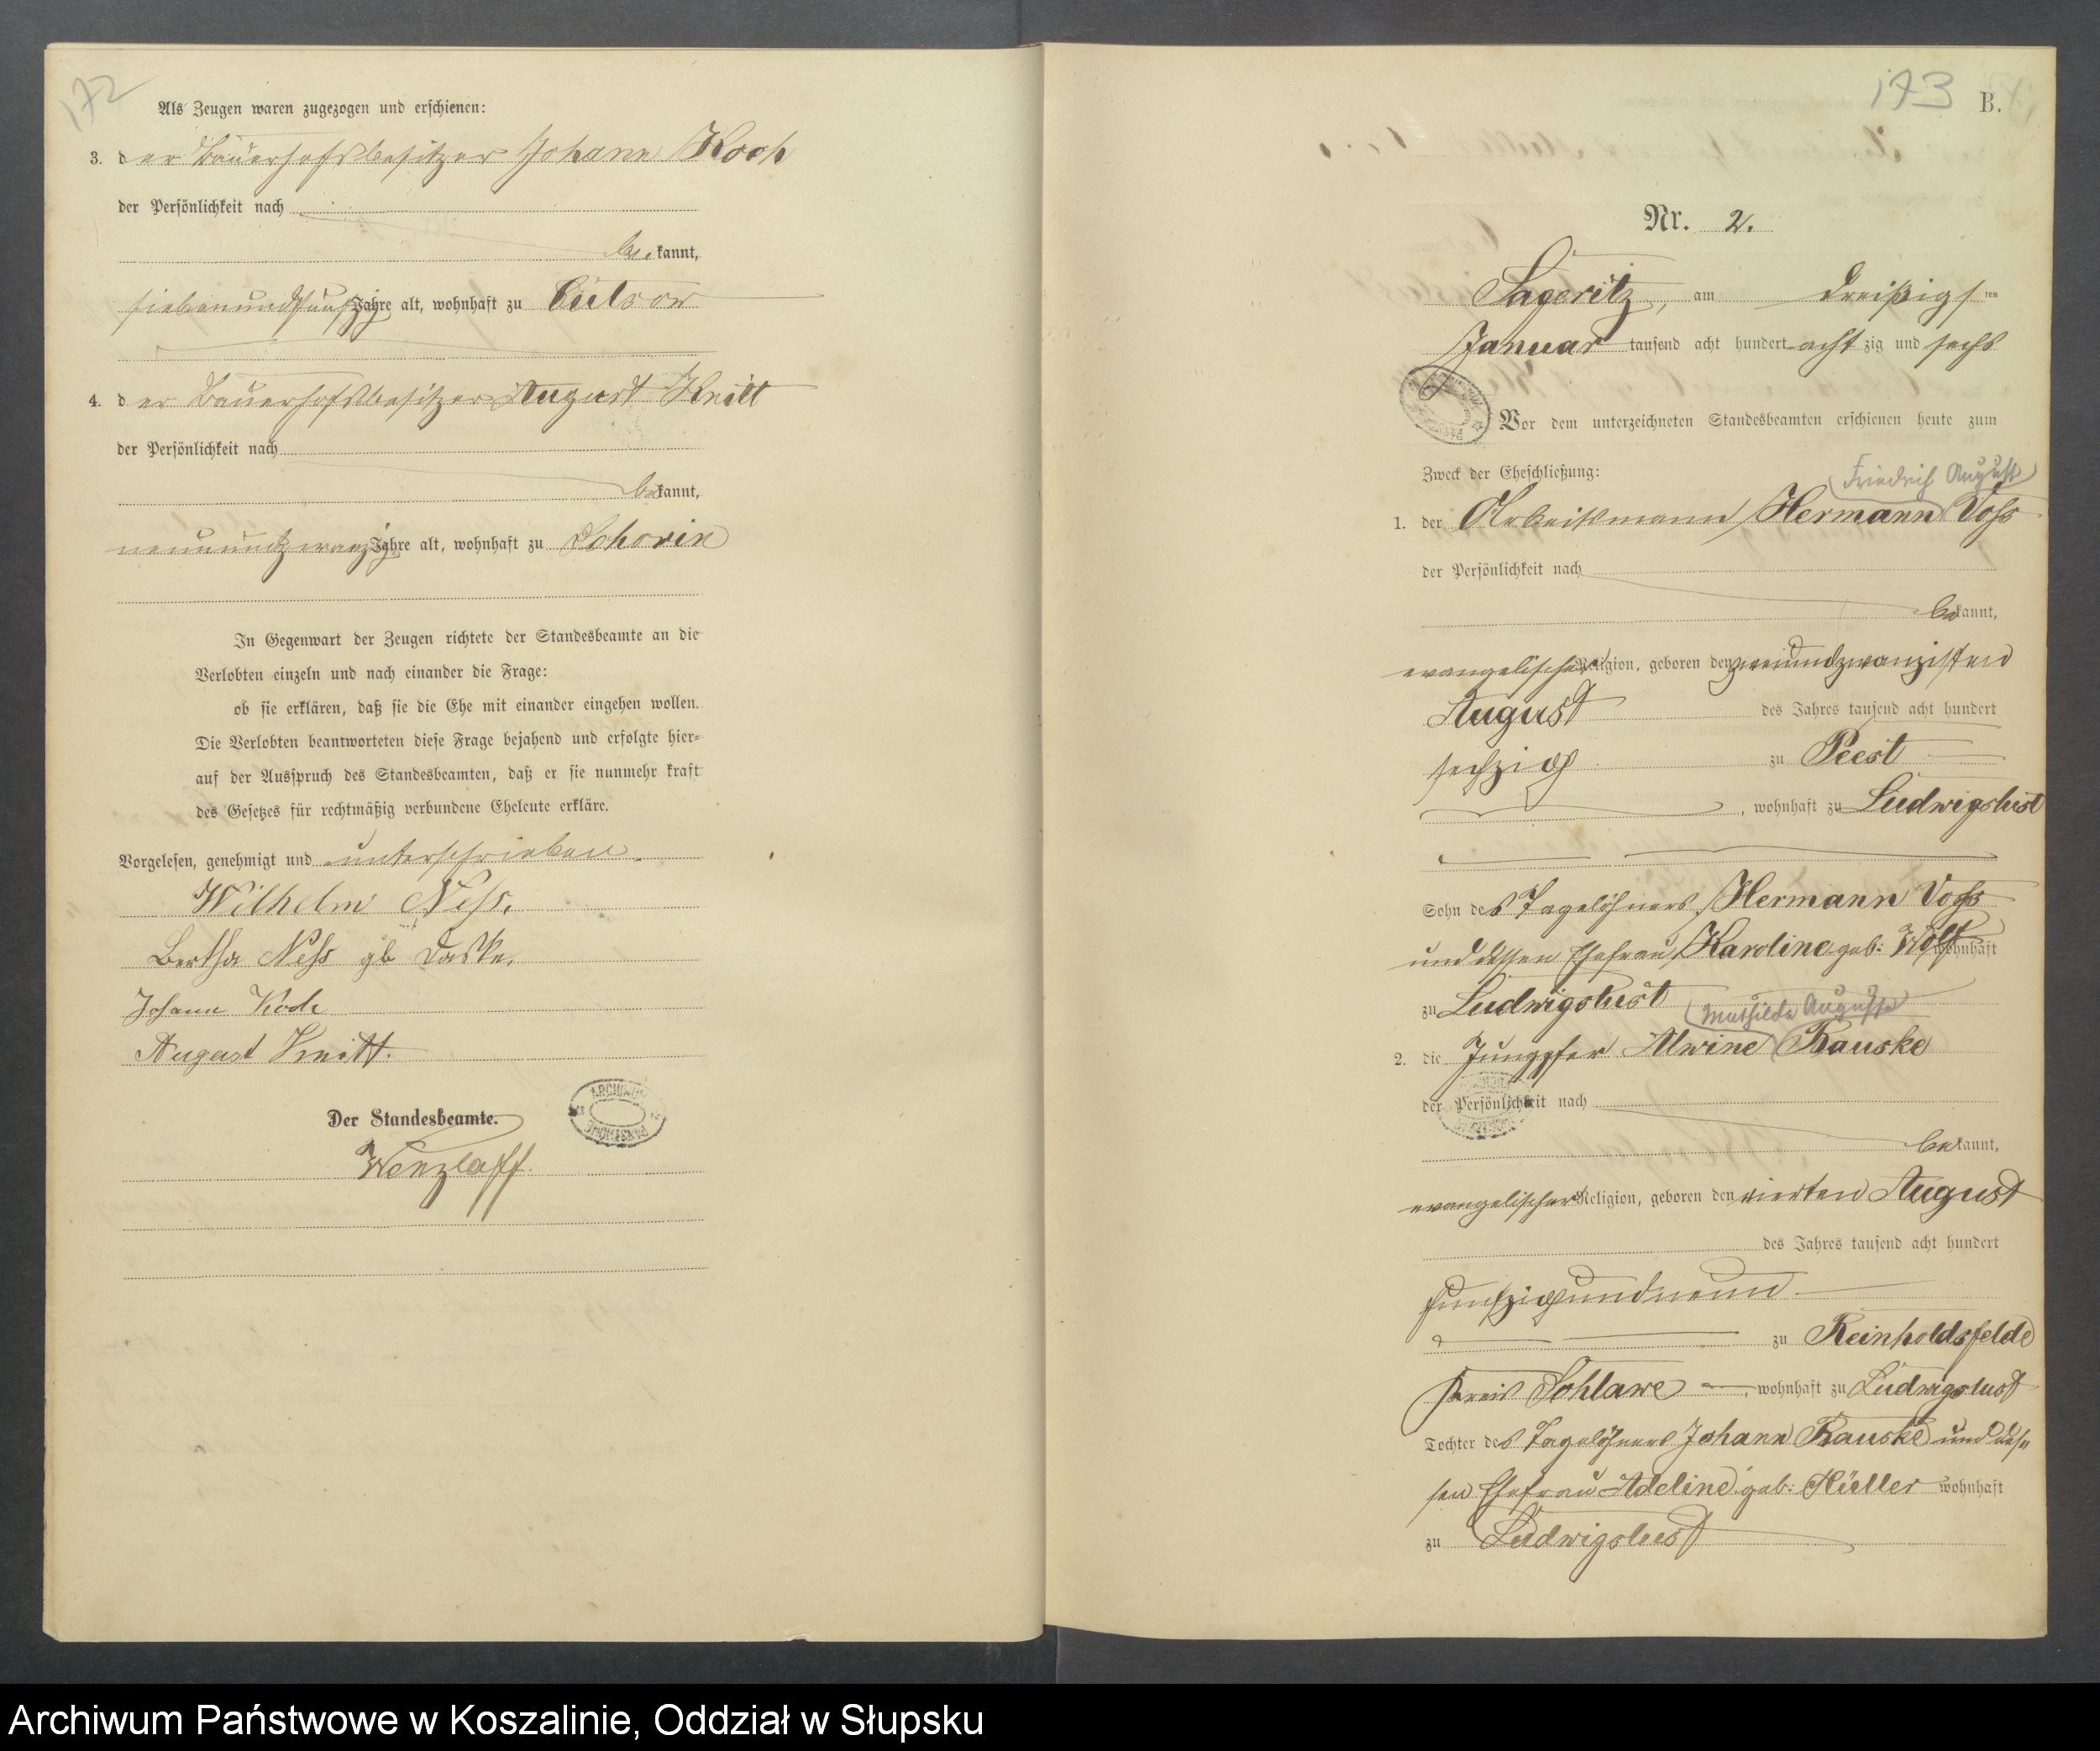 172
Als Zeugen waren zugezogen und erschienen:
3. der Bauerhofsbesitzer Johann Koch
der Persönlichkeit nach
bekannt,
siebenundfunfzig Jahre alt, wohnhaft zu Culsow
4. der Bauerhofsbesitzer August Knitt
der Persönlichkeit nach
bekannt,
neunundzwanzig Jahre alt, wohnhaft zu Schorin
In Gegenwart der Zeugen richtete der Standesbeamte an die
Verlobten einzeln und nach einander die Frage:
ob sie erklären, daß sie die Ehe mit einander eingehen wollen.
Die Verlobten beantworteten diese Frage bejahend und erfolgte hier=
auf der Ausspruch des Standesbeamten, daß er sie nunmehr kraft
des Gesetzes für rechtmäßig verbundene Eheleute erkläre.
Vorgelesen, genehmigt und unterschrieben.
Wilhelm Neß.
Bertha Neß gb Daske.
Johann Koch
August Knitt.
Der Standesbeamte.
Wenzlaff.
173 B.
Nr. 2.
Sageritz, am dreißigsten
Januar tausend acht hundert achtzig und sechs
Vor dem unterzeichneten Standesbeamten erschienen heute zum
Zweck der Eheschließung:
Friedrich August
1. der Arbeitsmann Hermann Voss
der Persönlichkeit nach
bekannt,
evangelischer Religion, geboren den zweiundzwanzigsten
August des Jahres tausend acht hundert
sechzig zu Peest
, wohnhaft zu Ludwigslust
Sohn des Tagelöhners Hermann Voss
und dessen Ehefrau Karoline geb: Wolf wohnhaft
zu Ludwigslust
Mathilde Auguste
2. die Jungfer Alwine Rauske
der Persönlichkeit nach
bekannt,
evangelischer Religion, geboren den vierten August
des Jahres tausend acht hundert
funfzigundneun
zu Reinholdsfelde
Kreis Schlawe, wohnhaft zu Ludwigslust
Tochter des Tagelöhners Johann Rauske und des
sen Ehefrau Adeline geb: Müller wohnhaft
zu Ludwigslust
Archiwum Państwowe w Koszalinie, Oddział w Słupsku